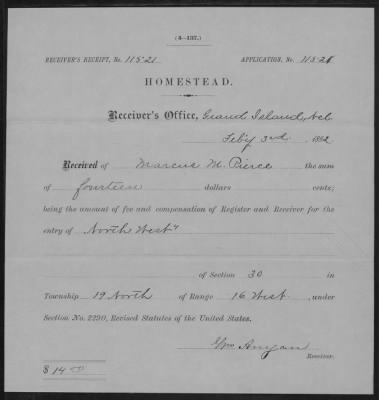 (4—137.)
RECEIVER'S RECEIPT, No. 11521 APPLICATION, No. 11521
HOMESTEAD.
Receiver's Office, Grand Island, Neb
Feby 3rd , 1882
Received of Marcus M. Pierce the sum
of fourteen dollars cents;
being the amount of fee and compensation of Register and Receiver for the
entry of North West
of Section 30 in
Township 19 North of Range 16 West , under
Section No. 2290, Revised Statutes of the United States.
Wm Anyan
Receiver.
$ 14